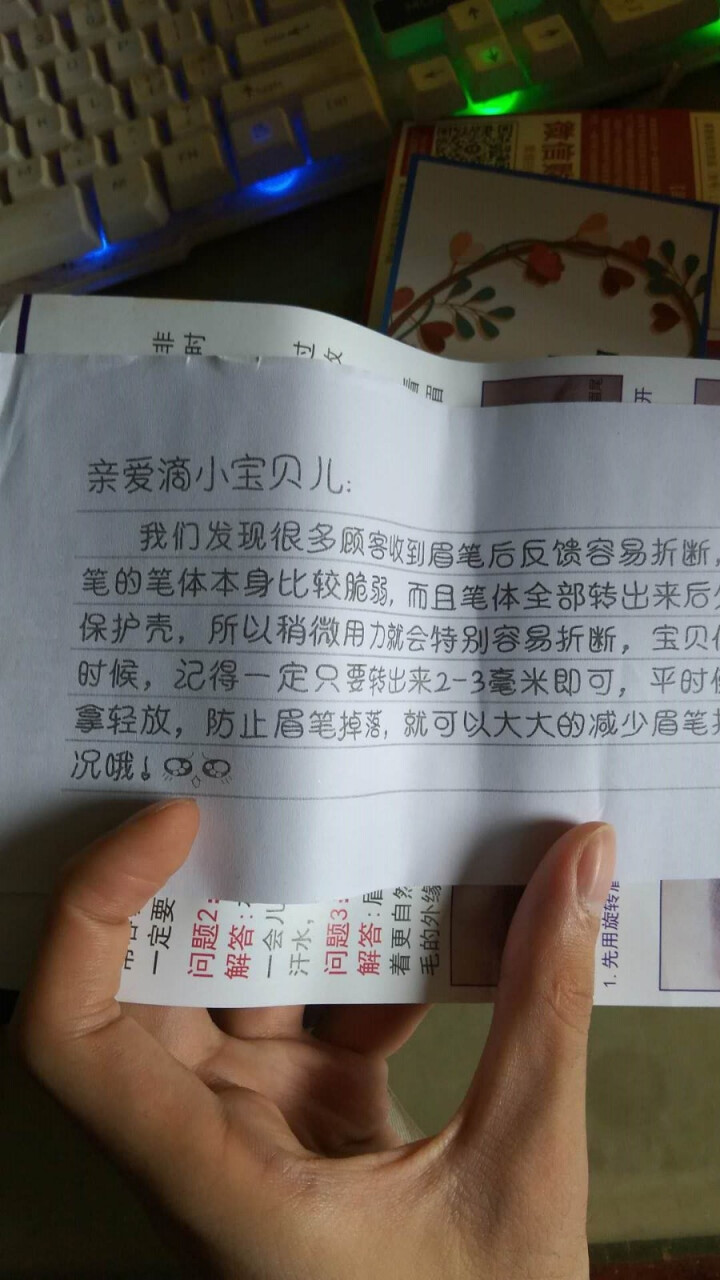 亲爱滴小宝贝儿:
我们发现很多顾客收到眉笔后反馈容易折断,
笔的笔体本身比较脆弱,而且笔体全部转出来后
保护壳,所以稍微用力就会特别容易折断,宝贝
时候,记得一定只要转出来2-3毫米即可,平时
拿轻放,防止眉笔掉落,就可以大大的减少眉笔
况哦!
非
时
过
眉
开
微信
一定要
问题2:
解答:
一会儿
汗水,
问题3:
解答:眉
着更自然
毛的外缘
1.先用旋转